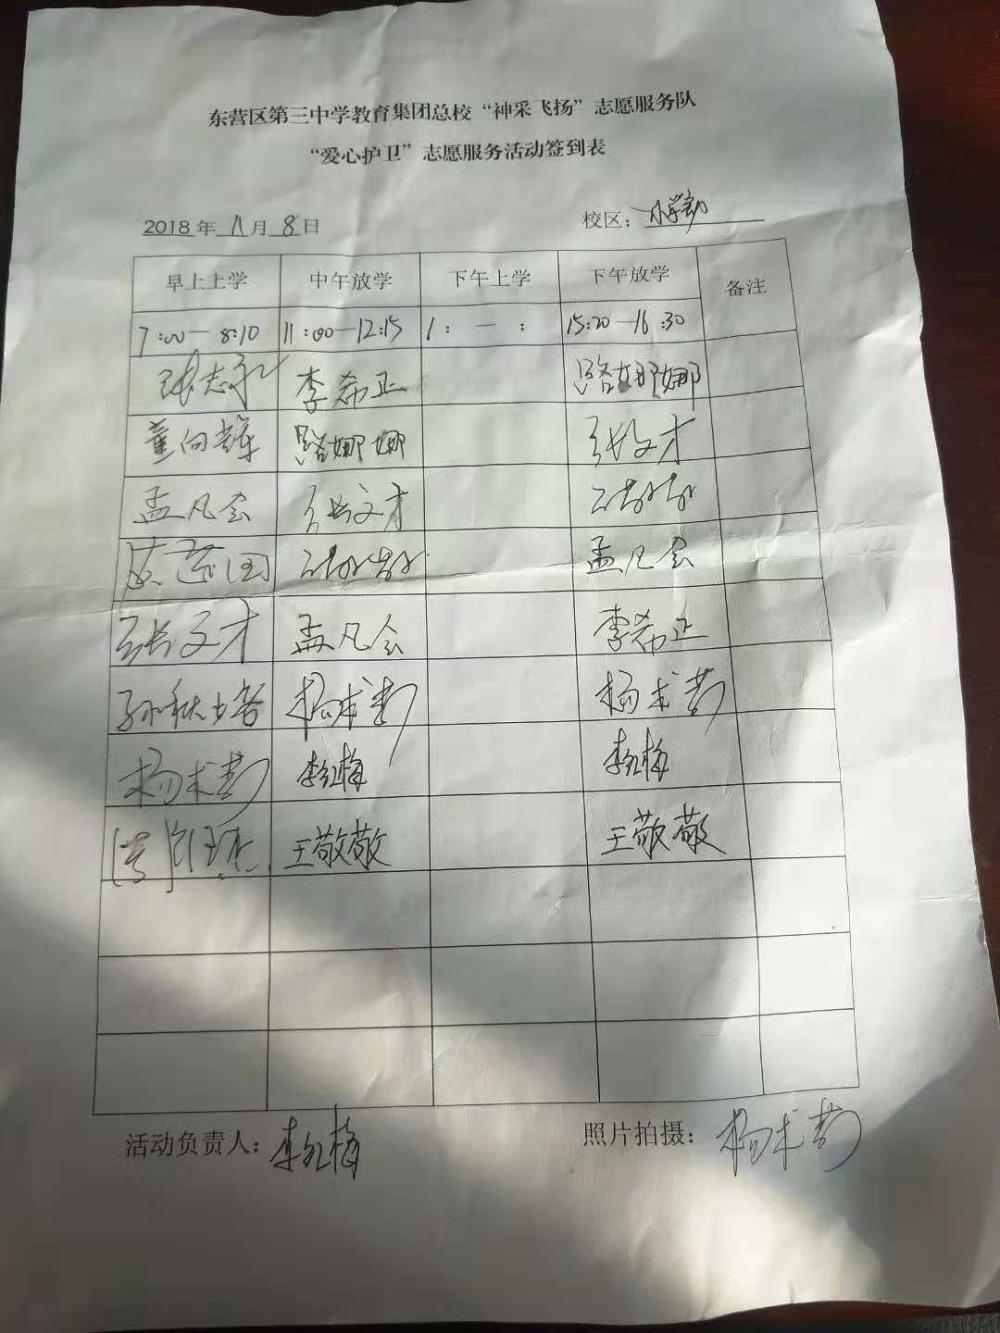 东营区第三中学教育集团总校“神采飞扬”志愿服务队
“爱心护卫”志愿服务活动签到表
2018年 11月 8日 校区：小学部
早上上学 中午放学 下午上学 下午放学 备注
7:00—8:10 11:00—12:15 1: — : 15:20—16:30
李希正 路娜娜
董向辉 路娜娜 张文才
孟凡会 张文才
孟凡会
张文才 孟凡会 李希正
杨术芳 杨术芳
杨术芳 李红梅 李红梅
王敬敬 王敬敬
活动负责人：李红梅 照片拍摄：杨术芳